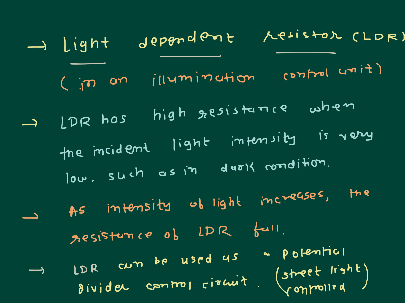 → Light dependent resistor (LDR)
(in an illumination control unit)
→ LDR has high resistance when
the incident light intensity is very
low. such as in dark condition.
→ As intensity of light increases, the
resistance of LDR fall.
→ LDR can be used as a potential
divider control circuit. (street light
controlled)